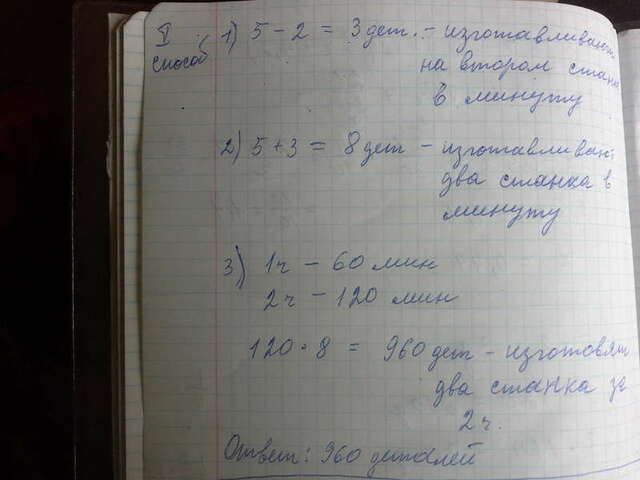 I
способ
1) 5 - 2 = 3 дет. - изготавливают
на втором станке
в минуту
2) 5 + 3 = 8 дет - изготавливают
два станка в
минуту
3) 1 ч - 60 мин
2 ч - 120 мин
120 · 8 = 960 дет - изготовят
два станка за
2 ч.
Ответ: 960 деталей